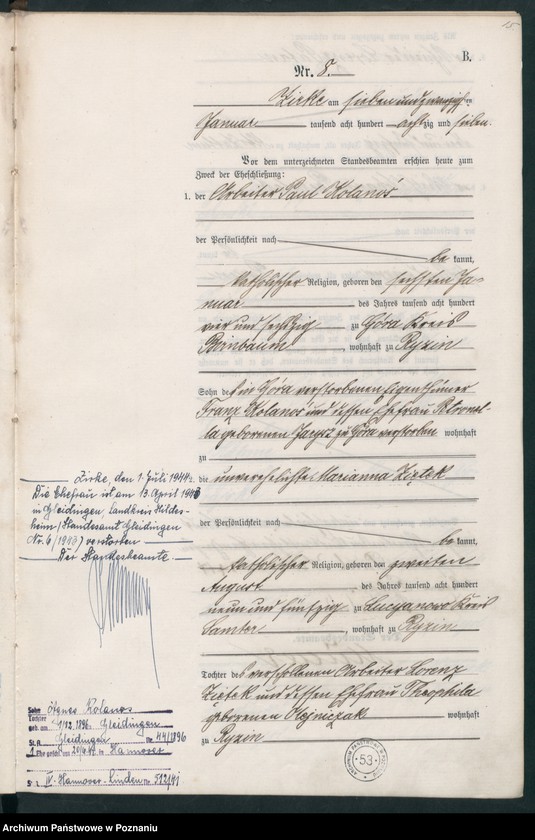 15
B.
Nr. 8.
Zirke am sieben und zwanzigsten
Januar tausend acht hundert achtzig und sieben.
Vor dem unterzeichneten Standesbeamten erschien heute zum
Zweck der Eheschließung:
1. der Arbeiter Paul Kolanoś
der Persönlichkeit nach
be kannt,
katholischer Religion, geboren den sechsten Ja-
nuar des Jahres tausend acht hundert
vier und sechzig zu Góra Kreis
Birnbaum, wohnhaft zu Ryzin
Sohn des in Góra verstorbenen Eigenthümer
Franz Kolanoś und dessen Ehefrau Petronel-
la geborenen zu Góra verstorben wohnhaft
zu
2. die unverehelichte Marianna Ziętek
der Persönlichkeit nach
be kannt,
katholischer Religion, geboren den zweiten
August, des Jahres tausend acht hundert
neun und fünfzig zu Lucyanowo Kreis
Samter, wohnhaft zu Ryzin
Tochter des verschollenen Arbeiter Lorenz
Ziętek und dessen Ehefrau Theophila
geborenen Olejniczak wohnhaft
zu Ryzin
Zirke, den 1. Juli 1944.
Die Ehefrau ist am 13. April 1943
in Gleidingen Landkreis Hildes-
heim (Standesamt Gleidingen
Nr. 6/1943) verstorben
Der Standesbeamte.
Sohn Agnes Kolanos
Tochter
geb. am 1/12.1896 Gleidingen
St. A. Gleidingen Nr. 44/1896
1. Ehe geschl. am in Hannover
St. A. IV. Hannover-Linden Nr. 522/41
ARCHIWUM PAŃSTWOWE W POZNANIU
53
Archiwum Państwowe w Poznaniu